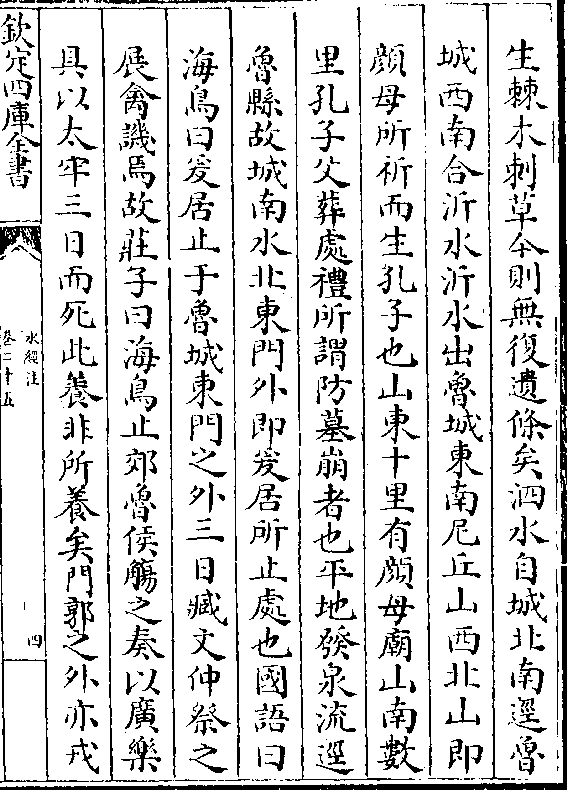 生棘木刺草今則無復遺條矣泗水自城北南逕魯
城西南合沂水沂水出魯城東南尼丘山西北山即
顔母所祈而生孔子也山東十里有顔母廟山南數
里孔子父葬處禮所謂防墓崩者也平地發泉流逕
魯縣故城南水北東門外即爰居所止處也國語曰
海鳥曰爰居止于魯城東門之外三日臧文仲祭之
展禽譏焉故莊子曰海鳥止郊魯侯觴之奏以廣樂
具以太牢三日而死此養非所養矣門郭之外亦戎
欽定四庫全書
水經注
卷二十五
四